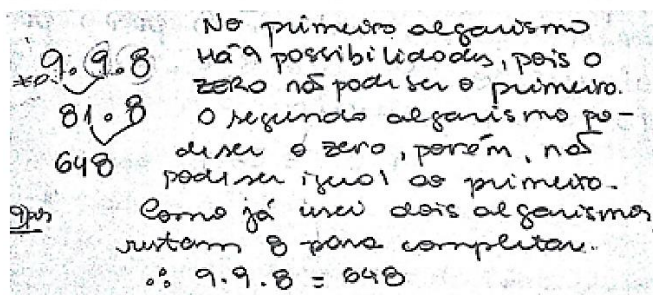 No primeiro algarismo
9.9.8 Há 9 possibilidades, pois o
≠0 zero não pode ser o primeiro.
81.8 O segundo algarismo po-
648 de ser o zero, porém, não
pode ser igual ao primeiro.
Como já usei dois algarismos,
restam 8 para completar.
∴ 9.9.8 = 648